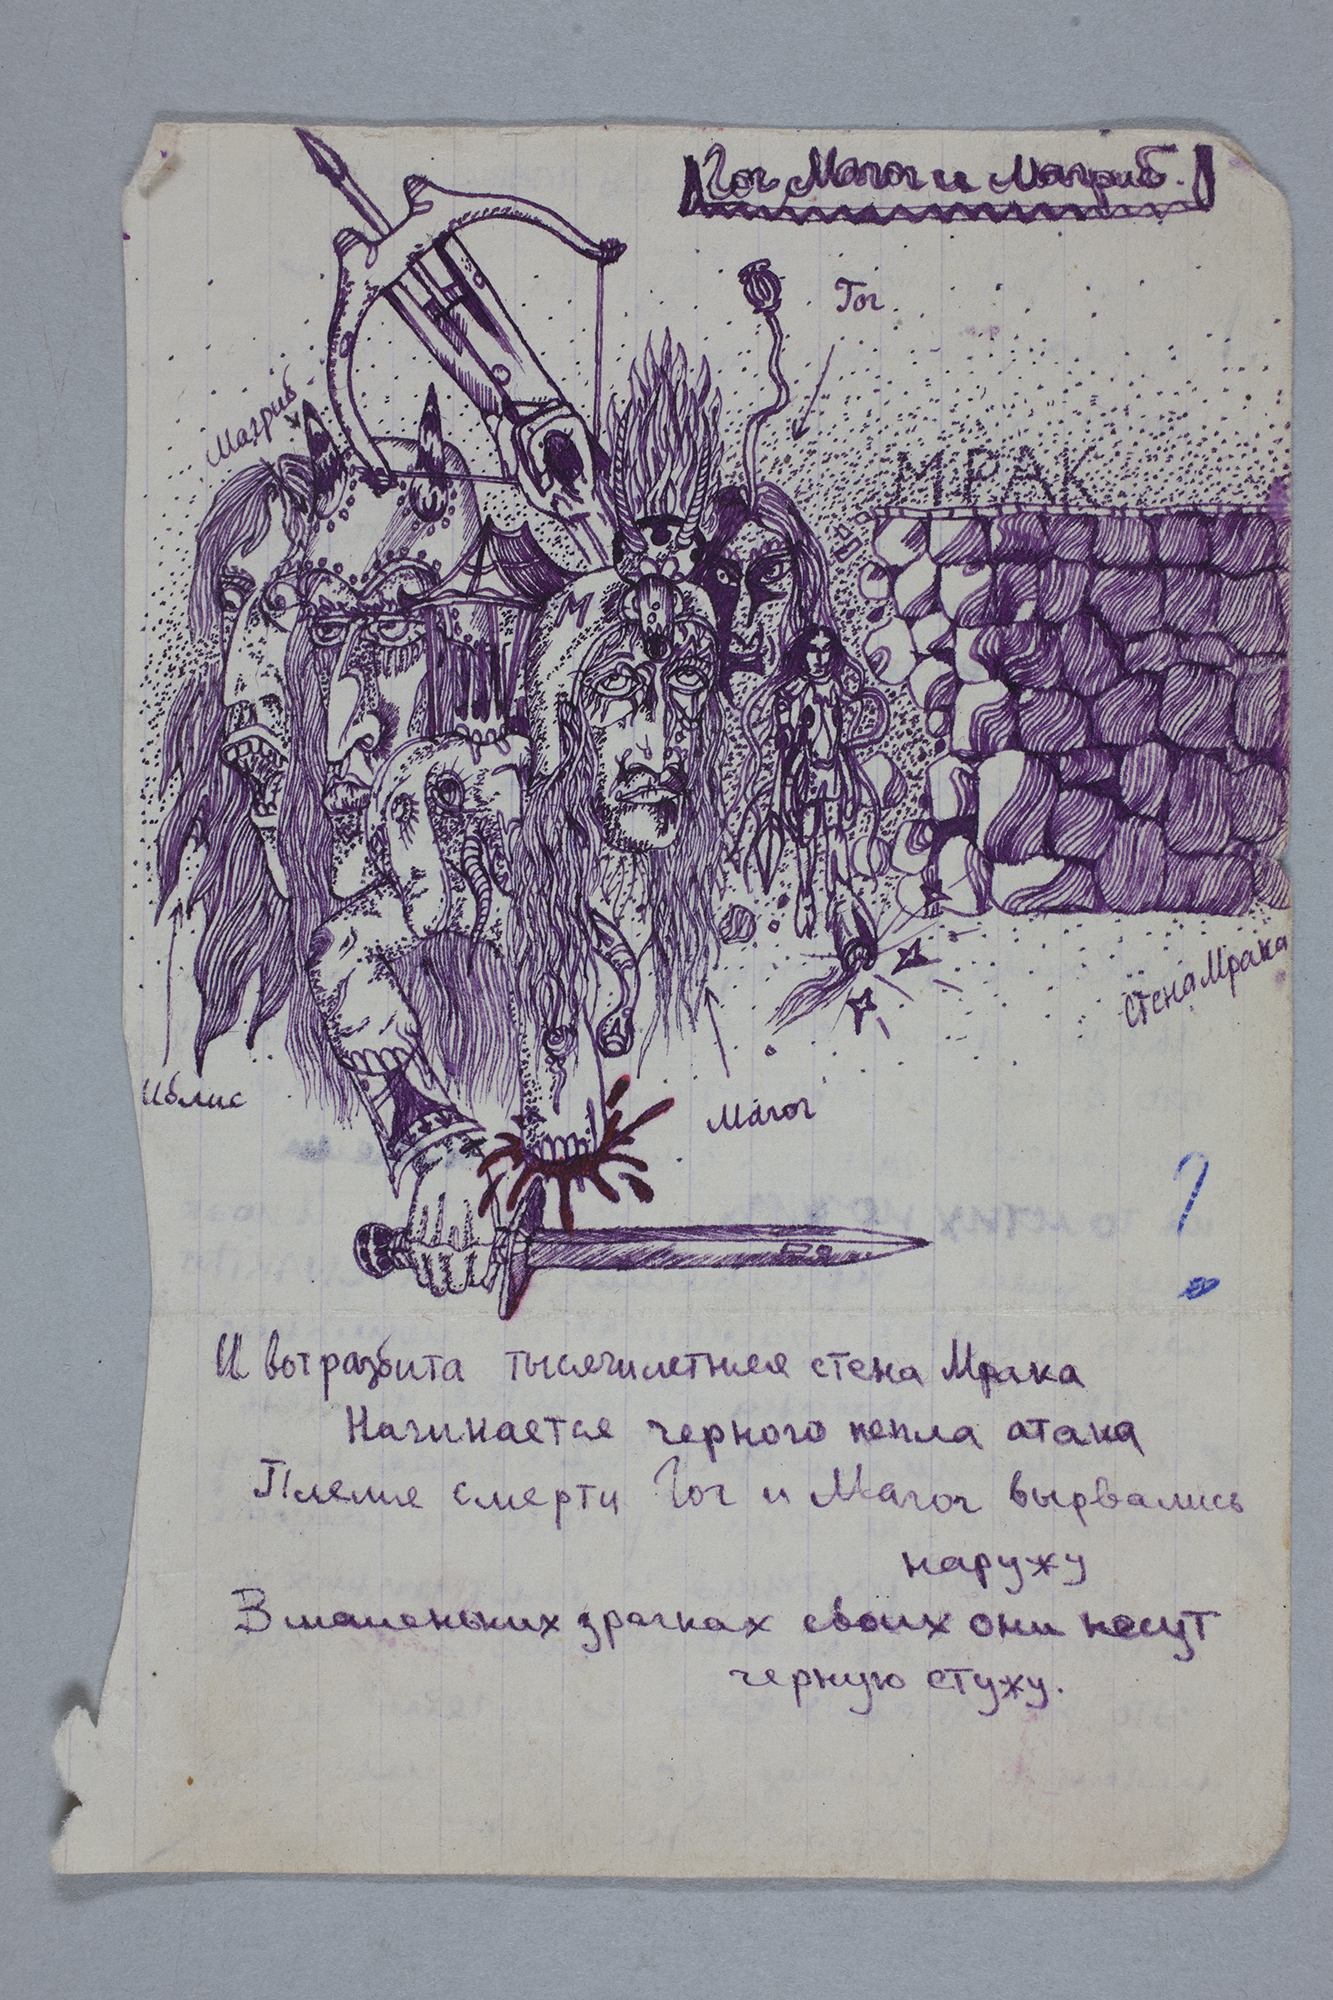 Гог, Магог и Магриб.
Гог
Магриб
МРАК
Стена Мрака
Иблис
Магог
М
?
И вот разбита тысячилетняя стена Мрака
Начинается черного пепла атака
Племя смерти Гог и Магог вырвались
наружу
В маленьких зрачках своих они несут
черную стужу.